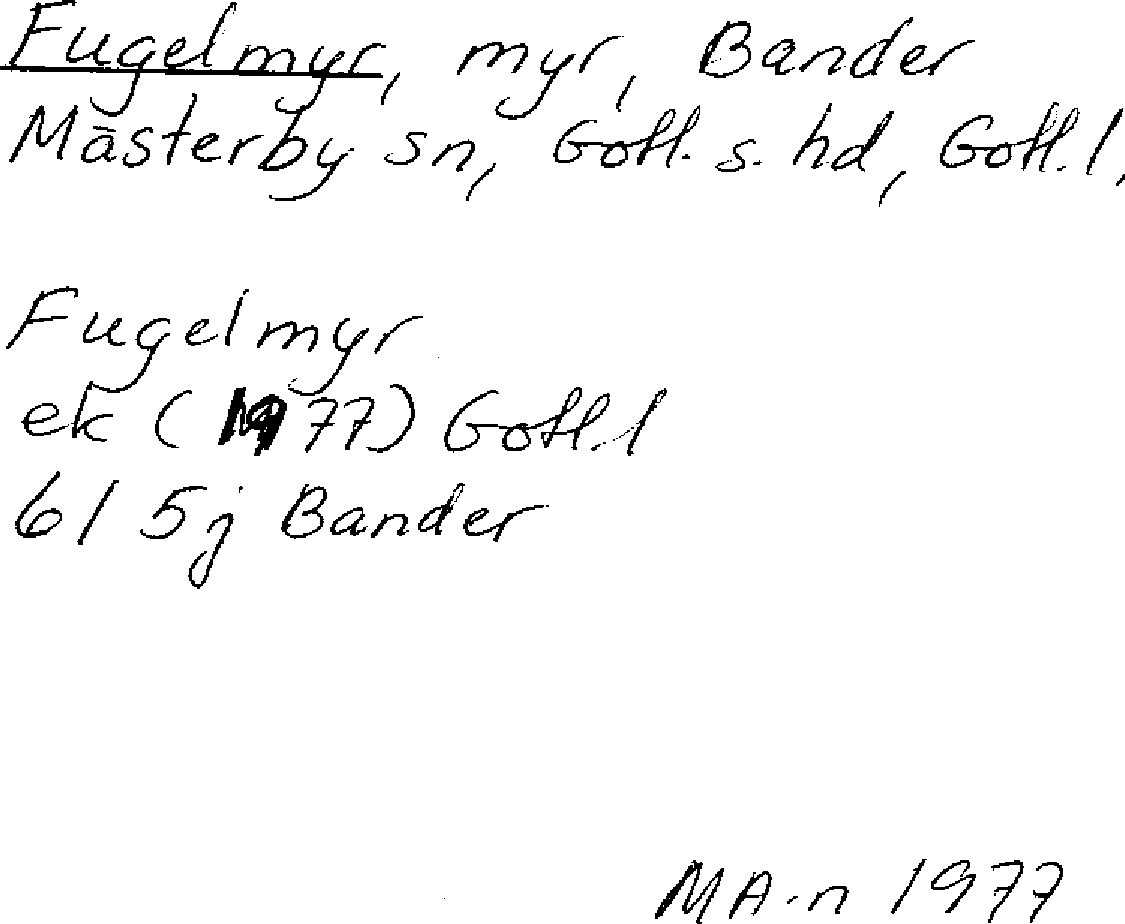 Fugelmyr, myr, Bander
Mästerby sn, Gotl. s. hd, Gotl. l.
Fugelmyr
ek (1977) Gotl. l
6I 5j Bander
MA-n 1977